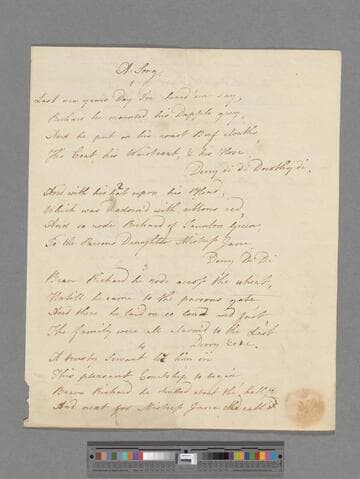 A Song.
1
Last new years Day I've heard em say,
Richard he mounted his Dapple grey,
And he put on his roast Beef cloaths
His Coat his Waistcoat, & his Hose
Derry di di Dorothy di.
2
And with his hat upon his Head,
Which was Bedawb'd with ribbons red,
And so rode Richard of Taunton Green,
To the Parsons Daughter Mistress Jane
Derry Di Di
3
Brave Richard he rode across the wheat,
Untill he came to the parsons gate
And there he laid on so loud and fast
The family were all alarm'd to the Last
Derry &c &c.
A trusty Servant let him in
This pleasant Courtship to begin
Brave Richard he strutted about the hall
And next for Mistress Jane did call